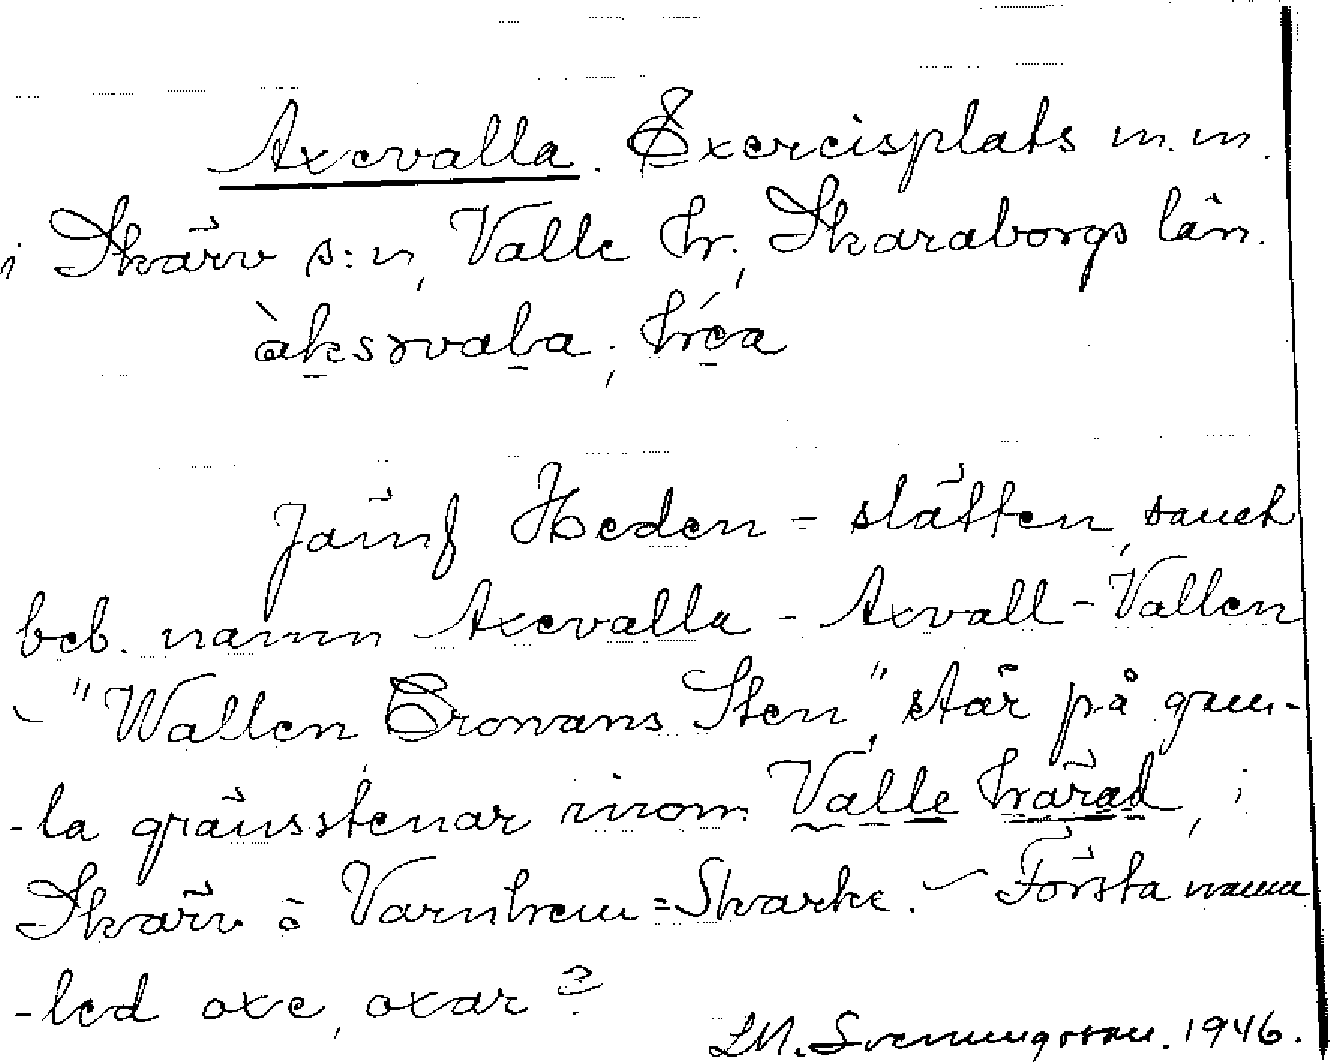 Axevalla. Exercisplats m.m.
i Skärv s:n, Valle hr, Skaraborgs län.
àksəvala, héa
Jämf Heden - slätten, samt
beb. namn Axevalla - Axvall - Vallen
- "Wallen Cronans Sten", står på gam-
-la gränsstenar inom Valle härad, i
Skärv o Varnhem = Skarke. - Första namn
-led oxe, oxar?
Svenungsson. 1946.